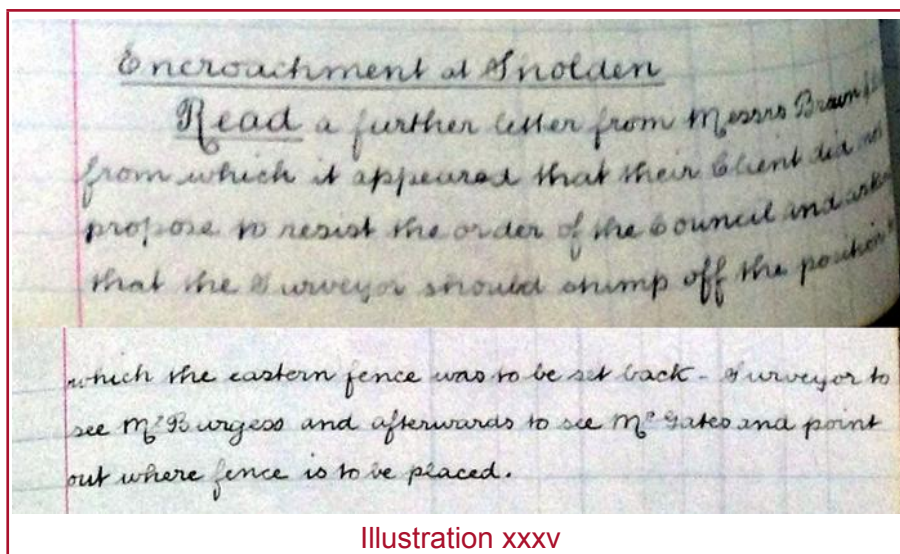 Encroachment at Snolden
Read a further letter from Messrs Braun
from which it appeared that their Client did not
propose to resist the order of the Council and
that the Surveyor should stump off the position
which the eastern fence was to be set back - Surveyor to
see Mr Burgess and afterwards to see Mr Gates and point
out where fence is to be placed.
Illustration xxxv